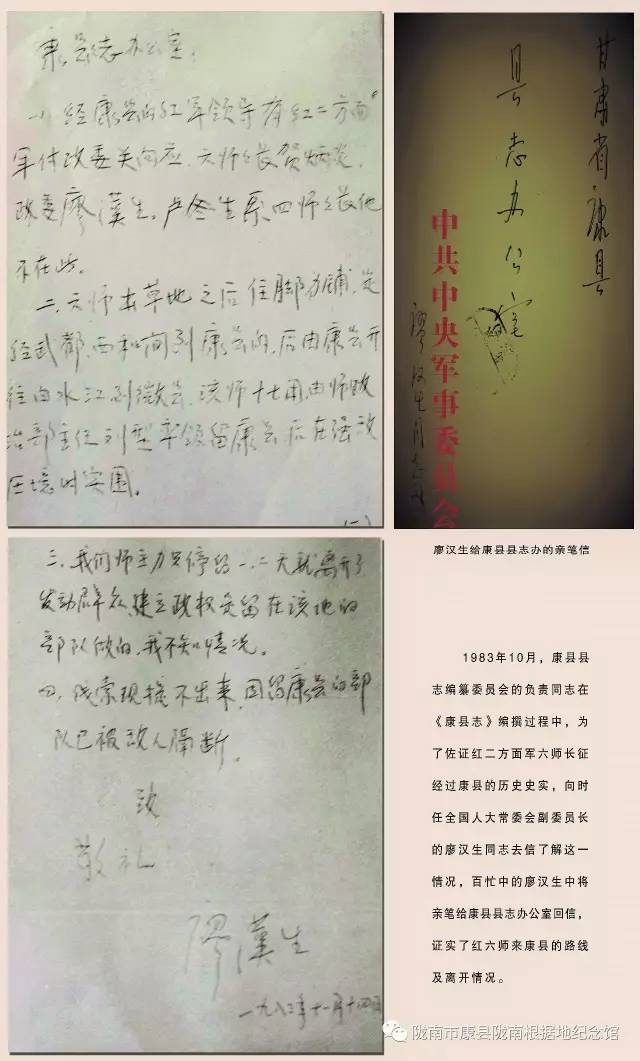 康县志办公室：
一、经康县的红军领导有红二方面
军付政委关向应，六师师长贺炳炎，
政委廖漢生。卢冬生系四师师长他
不在此。
二、六师出草地之后住脚力铺，是
经武都、西和间到康县的，后由康县开
往白水江到徽县，该师十七团由师政
治部主任刘型率领留康县，后在强敌
压境时突围。
(一)
三、我们师主力只停留一、二天就离开了
发动群众、建立政权是留在该地的
部队做的，我不知情况。
四、线索现提不出来，因留康县的部
队已被敌人隔断。
致
敬礼
廖漢生
一九八三年十一月十四日
甘肃省康县
县志办公室
中共中央军事委员会
廖汉生
廖汉生给康县县志办的亲笔信
1983年10月，康县县
志编纂委员会的负责同志在
《康县志》编撰过程中，为
了佐证红二方面军六师长征
经过康县的历史史实，向时
任全国人大常委会副委员长
的廖汉生同志去信了解这一
情况，百忙中的廖汉生中将
亲笔给康县县志办公室回信，
证实了红六师来康县的路线
及离开情况。
陇南市康县陇南根据地纪念馆